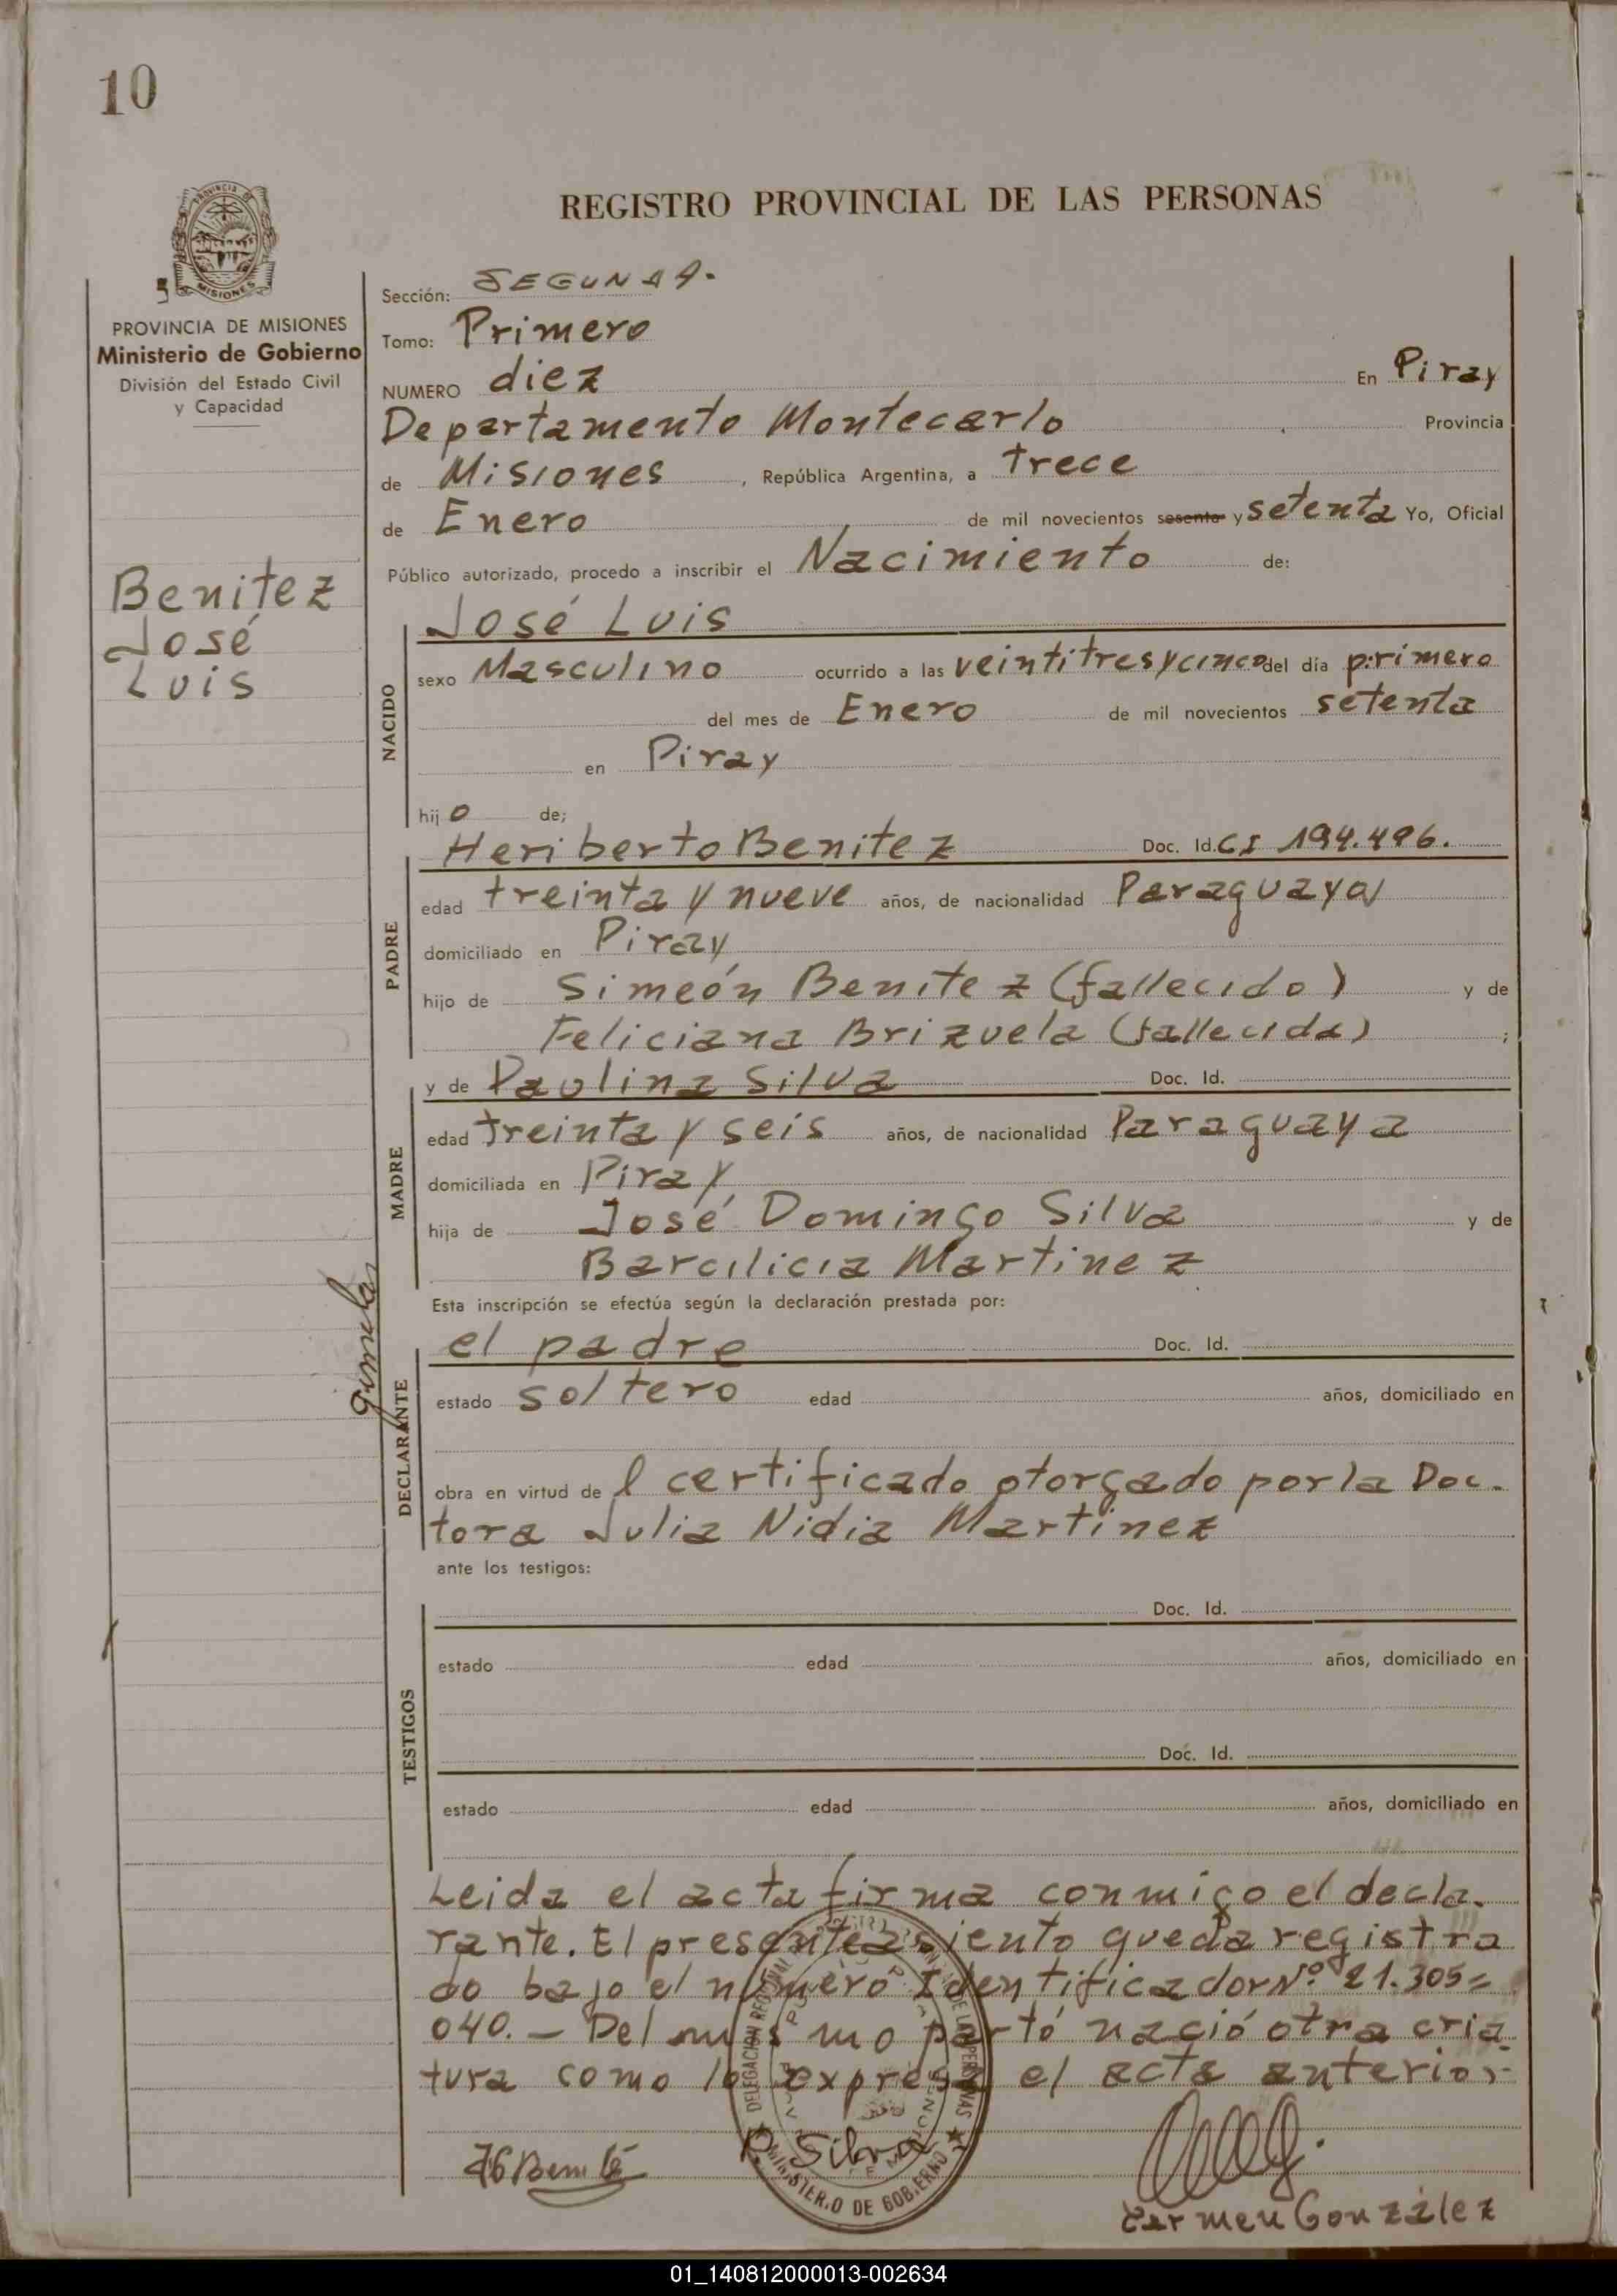 10
REGISTRO PROVINCIAL DE LAS PERSONAS
PROVINCIA DE
MISIONES
PROVINCIA DE MISIONES
Ministerio de Gobierno
División del Estado Civil
y Capacidad
Benitez
José
Luis
gemelar
Sección: SEGUNDA.
Tomo: Primero
NUMERO diez En Piray
Departamento Montecarlo Provincia
de Misiones, República Argentina, a trece
de Enero de mil novecientos sesenta y setenta Yo, Oficial
Público autorizado, procedo a inscribir el Nacimiento de:
NACIDO
José Luis
sexo Masculino ocurrido a las veintitres y cinco del día primero
del mes de Enero de mil novecientos setenta
en Piray
hijo de;
PADRE
Heriberto Benitez Doc. Id. CI 194.496.
edad treinta y nueve años, de nacionalidad Paraguaya
domiciliado en Piray
hijo de Simeón Benitez (fallecido) y de
Feliciana Brizuela (fallecida) ;
MADRE
y de Paulina Silva Doc. Id.
edad treinta y seis años, de nacionalidad Paraguaya
domiciliada en Piray
hija de José Domingo Silva y de
Barcilicia Martinez
Esta inscripción se efectúa según la declaración prestada por:
DECLARANTE
el padre Doc. Id.
estado soltero edad años, domiciliado en
obra en virtud de l certificado otorgado por la Doc-
tora Julia Nidia Martinez
ante los testigos:
TESTIGOS
Doc. Id.
estado edad años, domiciliado en
Doc. Id.
estado edad años, domiciliado en
Leida el acta firma conmigo el decla-
rante. El presente asiento queda registra
do bajo el número Identificador Nº 21.305=
040.- Del mismo parto nació otra cria
tura como lo expresa el acta anterior-
P. Silva
DELEGACION REGIONAL DE LAS PERSONAS
MINISTERIO DE GOBIERNO
Carmen González
01_140812000013-002634